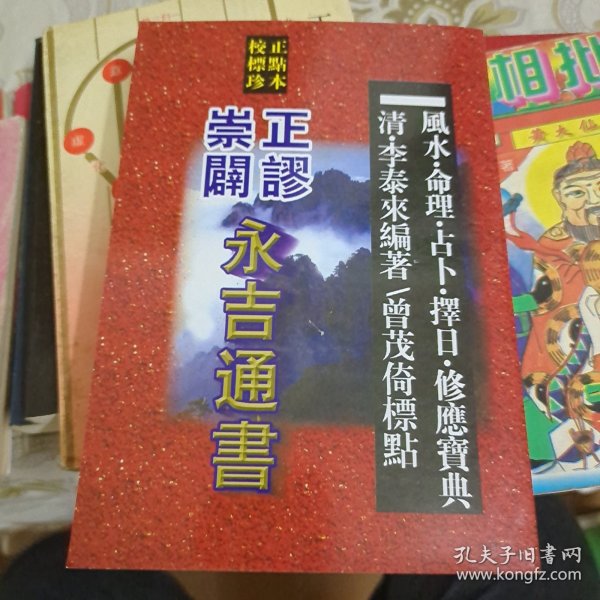 校正
標點
珍本
崇正
闢謬
永吉通書
風水·命理·占卜·擇日·修應寶典
清·李泰來編著/曾茂倚標點
相批
黃大仙
孔夫子旧书网
www.kongfz.com